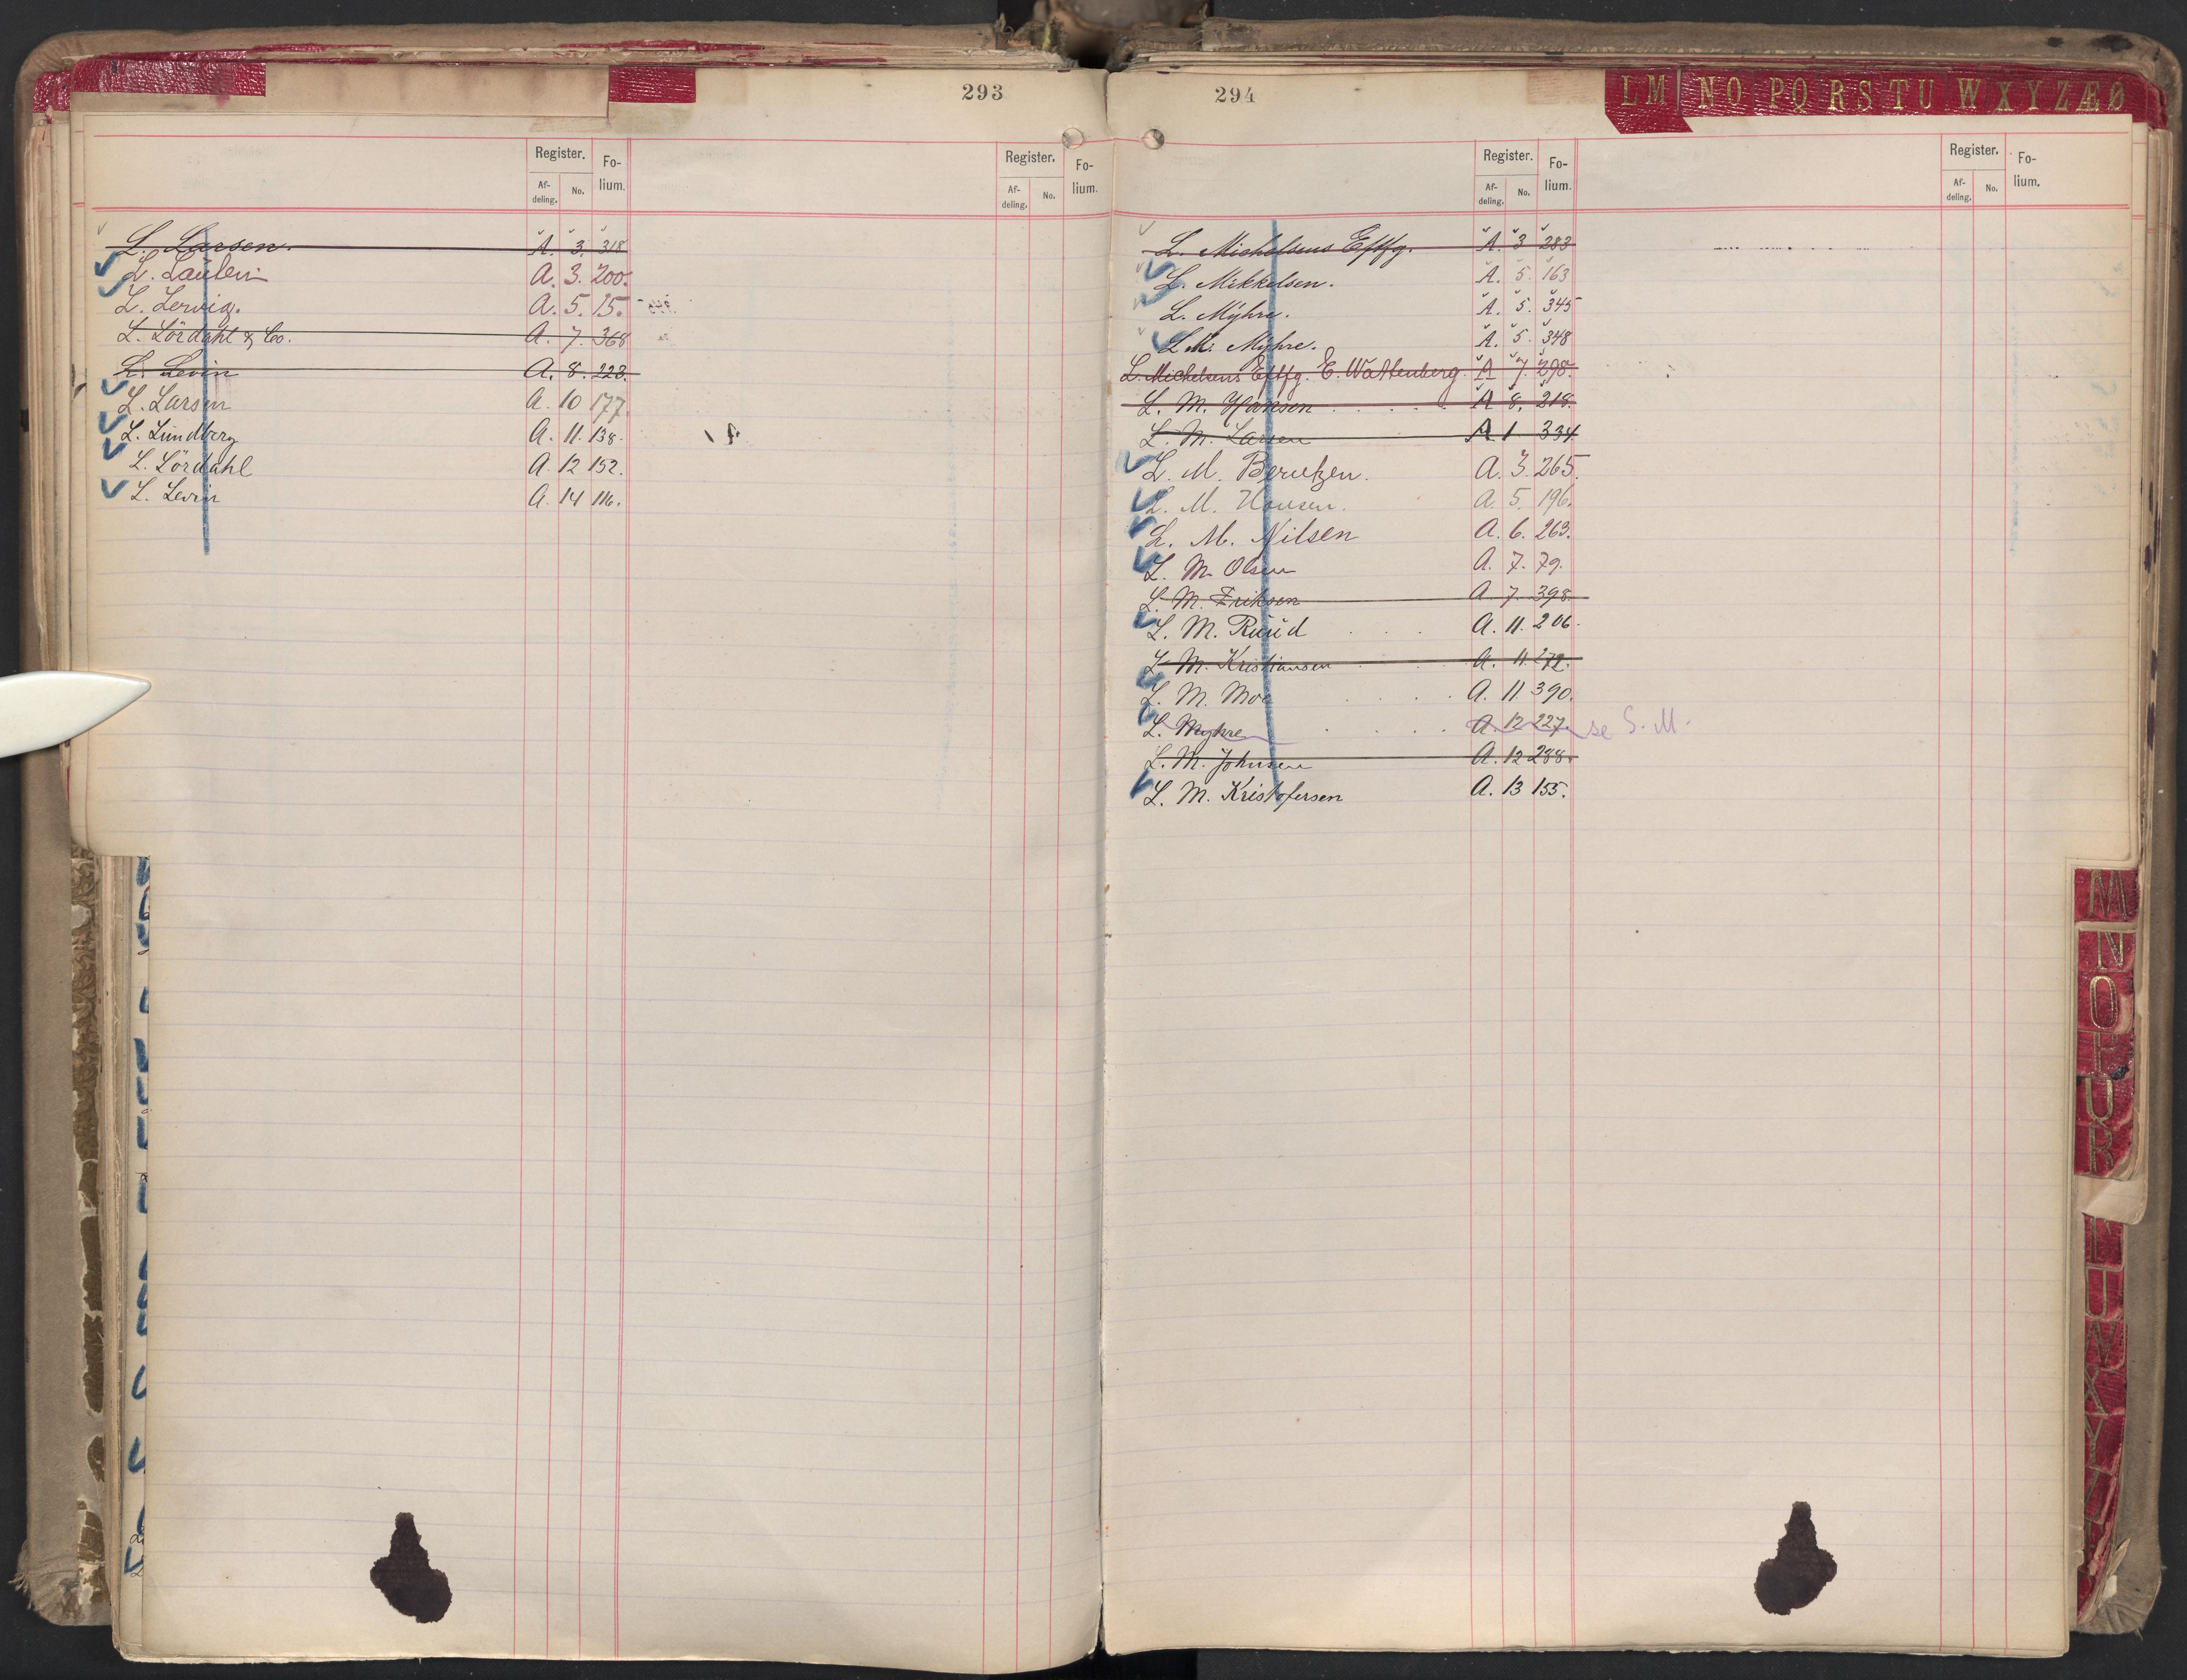 293
Register. Fo-
Af- No. lium.
deling.
Register. Fo-
Af- No. lium.
deling.
L. Larsen. A. 3. 318
L. Laulen A. 3. 200.
L. Lervig. A. 5. 15.
L. Lördahl & Co. A. 7. 368
L. Levin A. 8. 223.
L. Larsen A. 10 177.
L. Lundberg A. 11. 138.
L. Lördahl A. 12 152.
L. Levin A. 14 116.
294
L M N O P Q R S T U W X Y Z Æ Ø
Register. Fo-
Af- No. lium.
deling.
Register. Fo-
Af- No. lium.
deling.
L. Michelsens Eftfg. A. 3 283
L. Mikkelsen. A. 5. 163
L. Myhre. A. 5. 345
L. M. Myhre. A. 5. 348
L. Michelsens Eftfg. E. Wattenberg. A 7 298.
L. M. Hansen A 8. 218.
L. M. Larsen A 1 334
L. M. Berntzen. A. 3. 265.
L. M. Hansen. A. 5. 196.
L. M. Nilsen A. 6. 263.
L. M. Olsen A. 7. 79.
L. M. Eriksen A. 7. 398.
L. M. Ruud A. 11. 206.
L. M. Kristiansen A. 11. 272.
L. M. Moe A. 11 390.
L. Myhre A. 12 227. se S. M.
L. M. Johnsen A. 12 288.
L. M. Kristofersen A. 13 155.
M
N
O
P
U
R
U
W
X
Y